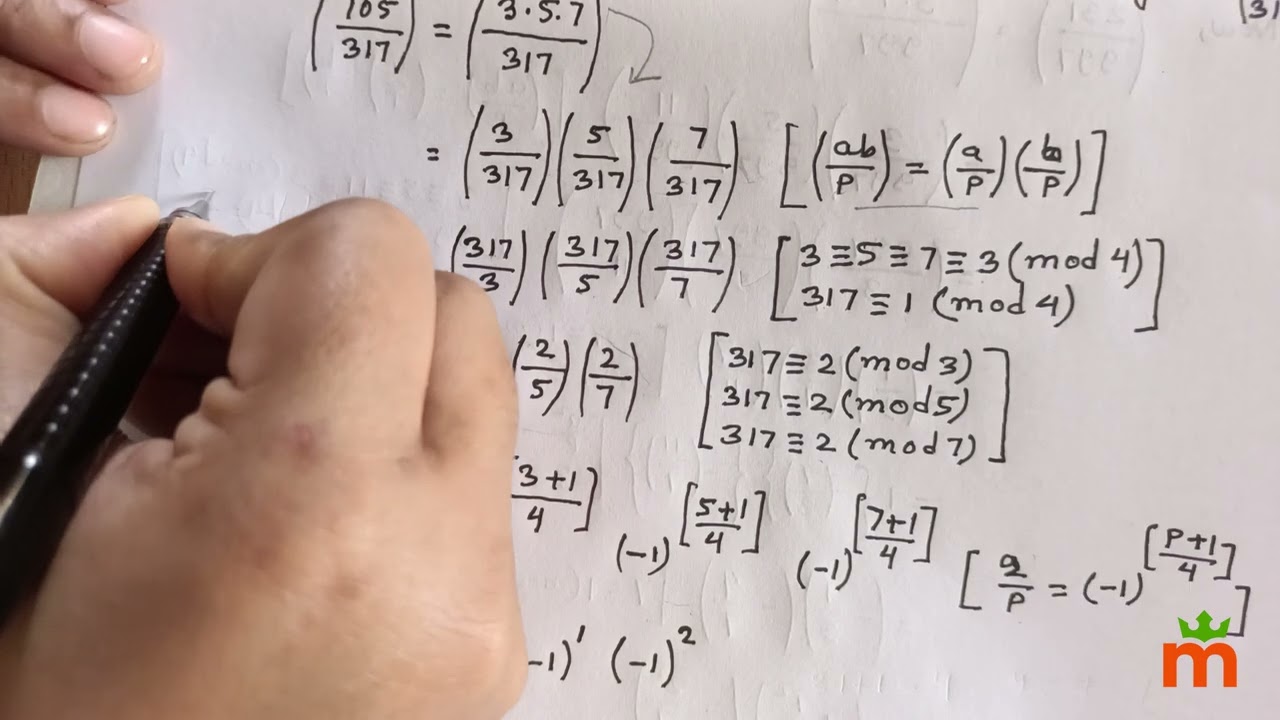 (105/317) = (3·5·7/317)
= (3/317)(5/317)(7/317) [(ab/p) = (a/p)(b/p)]
(317/3)(317/5)(317/7) [3≡5≡7≡3(mod 4)
317≡1 (mod 4)]
(2/5)(2/7) [317≡2(mod 3)
317≡2(mod5)
317≡2(mod7)]
3+1/4] (-1)^[5+1/4] (-1)^[7+1/4] [2/p = (-1)^[p+1/4]]
-1)^1 (-1)^2
m